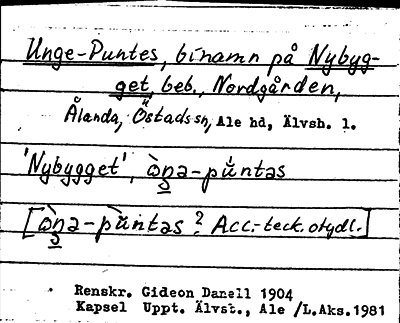 Unge-Puntes, binamn på Nybyg-
get, beb., Nordgården,
Ålanda, Östads sn, Ale hd, Älvsb. l.
'Nybygget', ɷ̀ŋa-pǘntas
[ɷ̀ŋa-pǜntas? Acc.-teck. otydl.]
Renskr. Gideon Danell 1904
Kapsel Uppt. Älvst., Ale /L.Aks.1981